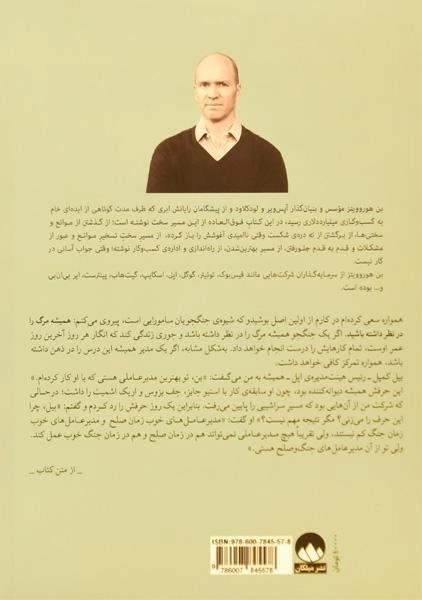 بن هوروویتز مؤسس و بنیان‌گذار آپس‌ویر و لودکلاود و از پیشگامان رایانش ابری که ظرف مدت کوتاهی از ایده‌ای خام
به کسب‌وکاری میلیارددلاری رسید، در این کتاب فوق‌العاده از این مسیر سخت نوشته است؛ از گذشتن از موانع و
سختی‌ها، از برگشتن از ته دره‌ی شکست وقتی ناامیدی آغوشش را باز کرده، از مسیر سختِ تسخیر موانع و عبور از
مشکلات و قدم به قدم جلورفتن، از مسیر بهترین‌شدن، از راه‌اندازی و اداره‌ی کسب‌وکار نوشته؛ وقتی جواب آسانی در
کار نیست.
بن هوروویتز از سرمایه‌گذاران شرکت‌هایی مانند فیس‌بوک، توئیتر، گوگل، اپل، اسکایپ، گیت‌هاب، پینترست، ایر بی‌ان‌بی
و... بوده است.
همواره سعی کرده‌ام در کارم از اولین اصل بوشیدو که شیوه‌ی جنگجویان سامورایی است، پیروی می‌کنم: همیشه مرگ را
در نظر داشته باشید. اگر یک جنگجو همیشه مرگ را در نظر داشته باشد و جوری زندگی کند که انگار هر روز آخرین روز
عمر اوست، تمام کارهایش را درست انجام خواهد داد. به‌شکل مشابه، اگر یک مدیر همیشه این درس را در ذهن داشته
باشد، همواره تمرکز کافی خواهد داشت.
بیل کمپل ـ رئیس هیئت‌مدیره‌ی اپل ـ همیشه به من می‌گفت: «بن، تو بهترین مدیرعاملی هستی که با او کار کرده‌ام.»
این حرفش همیشه دیوانه‌کننده بود، چون او سابقه‌ی کار با استیو جابز، جف بزوس و اریک اشمیت را داشت؛ درحالی
که شرکت من از آن‌هایی بود که مسیر سراشیبی را پایین می‌رفت. بنابراین یک روز حرفش را رد کردم و گفتم: «بیل، چرا
این حرف را می‌زنی؟ مگر نتیجه مهم نیست؟» او گفت: «مدیرعامل‌های خوب زمان صلح و مدیرعامل‌های خوب
زمان جنگ کم نیستند، ولی تقریباً هیچ مدیرعاملی نمی‌تواند هم در زمان صلح و هم در زمان جنگ خوب عمل کند.
ولی تو از آن مدیرعامل‌های جنگ‌وصلح هستی.»
ـ از متن کتاب ـ
ISBN: 978-600-7845-57-8
9 786007 845578
نشر میلکان
تومان